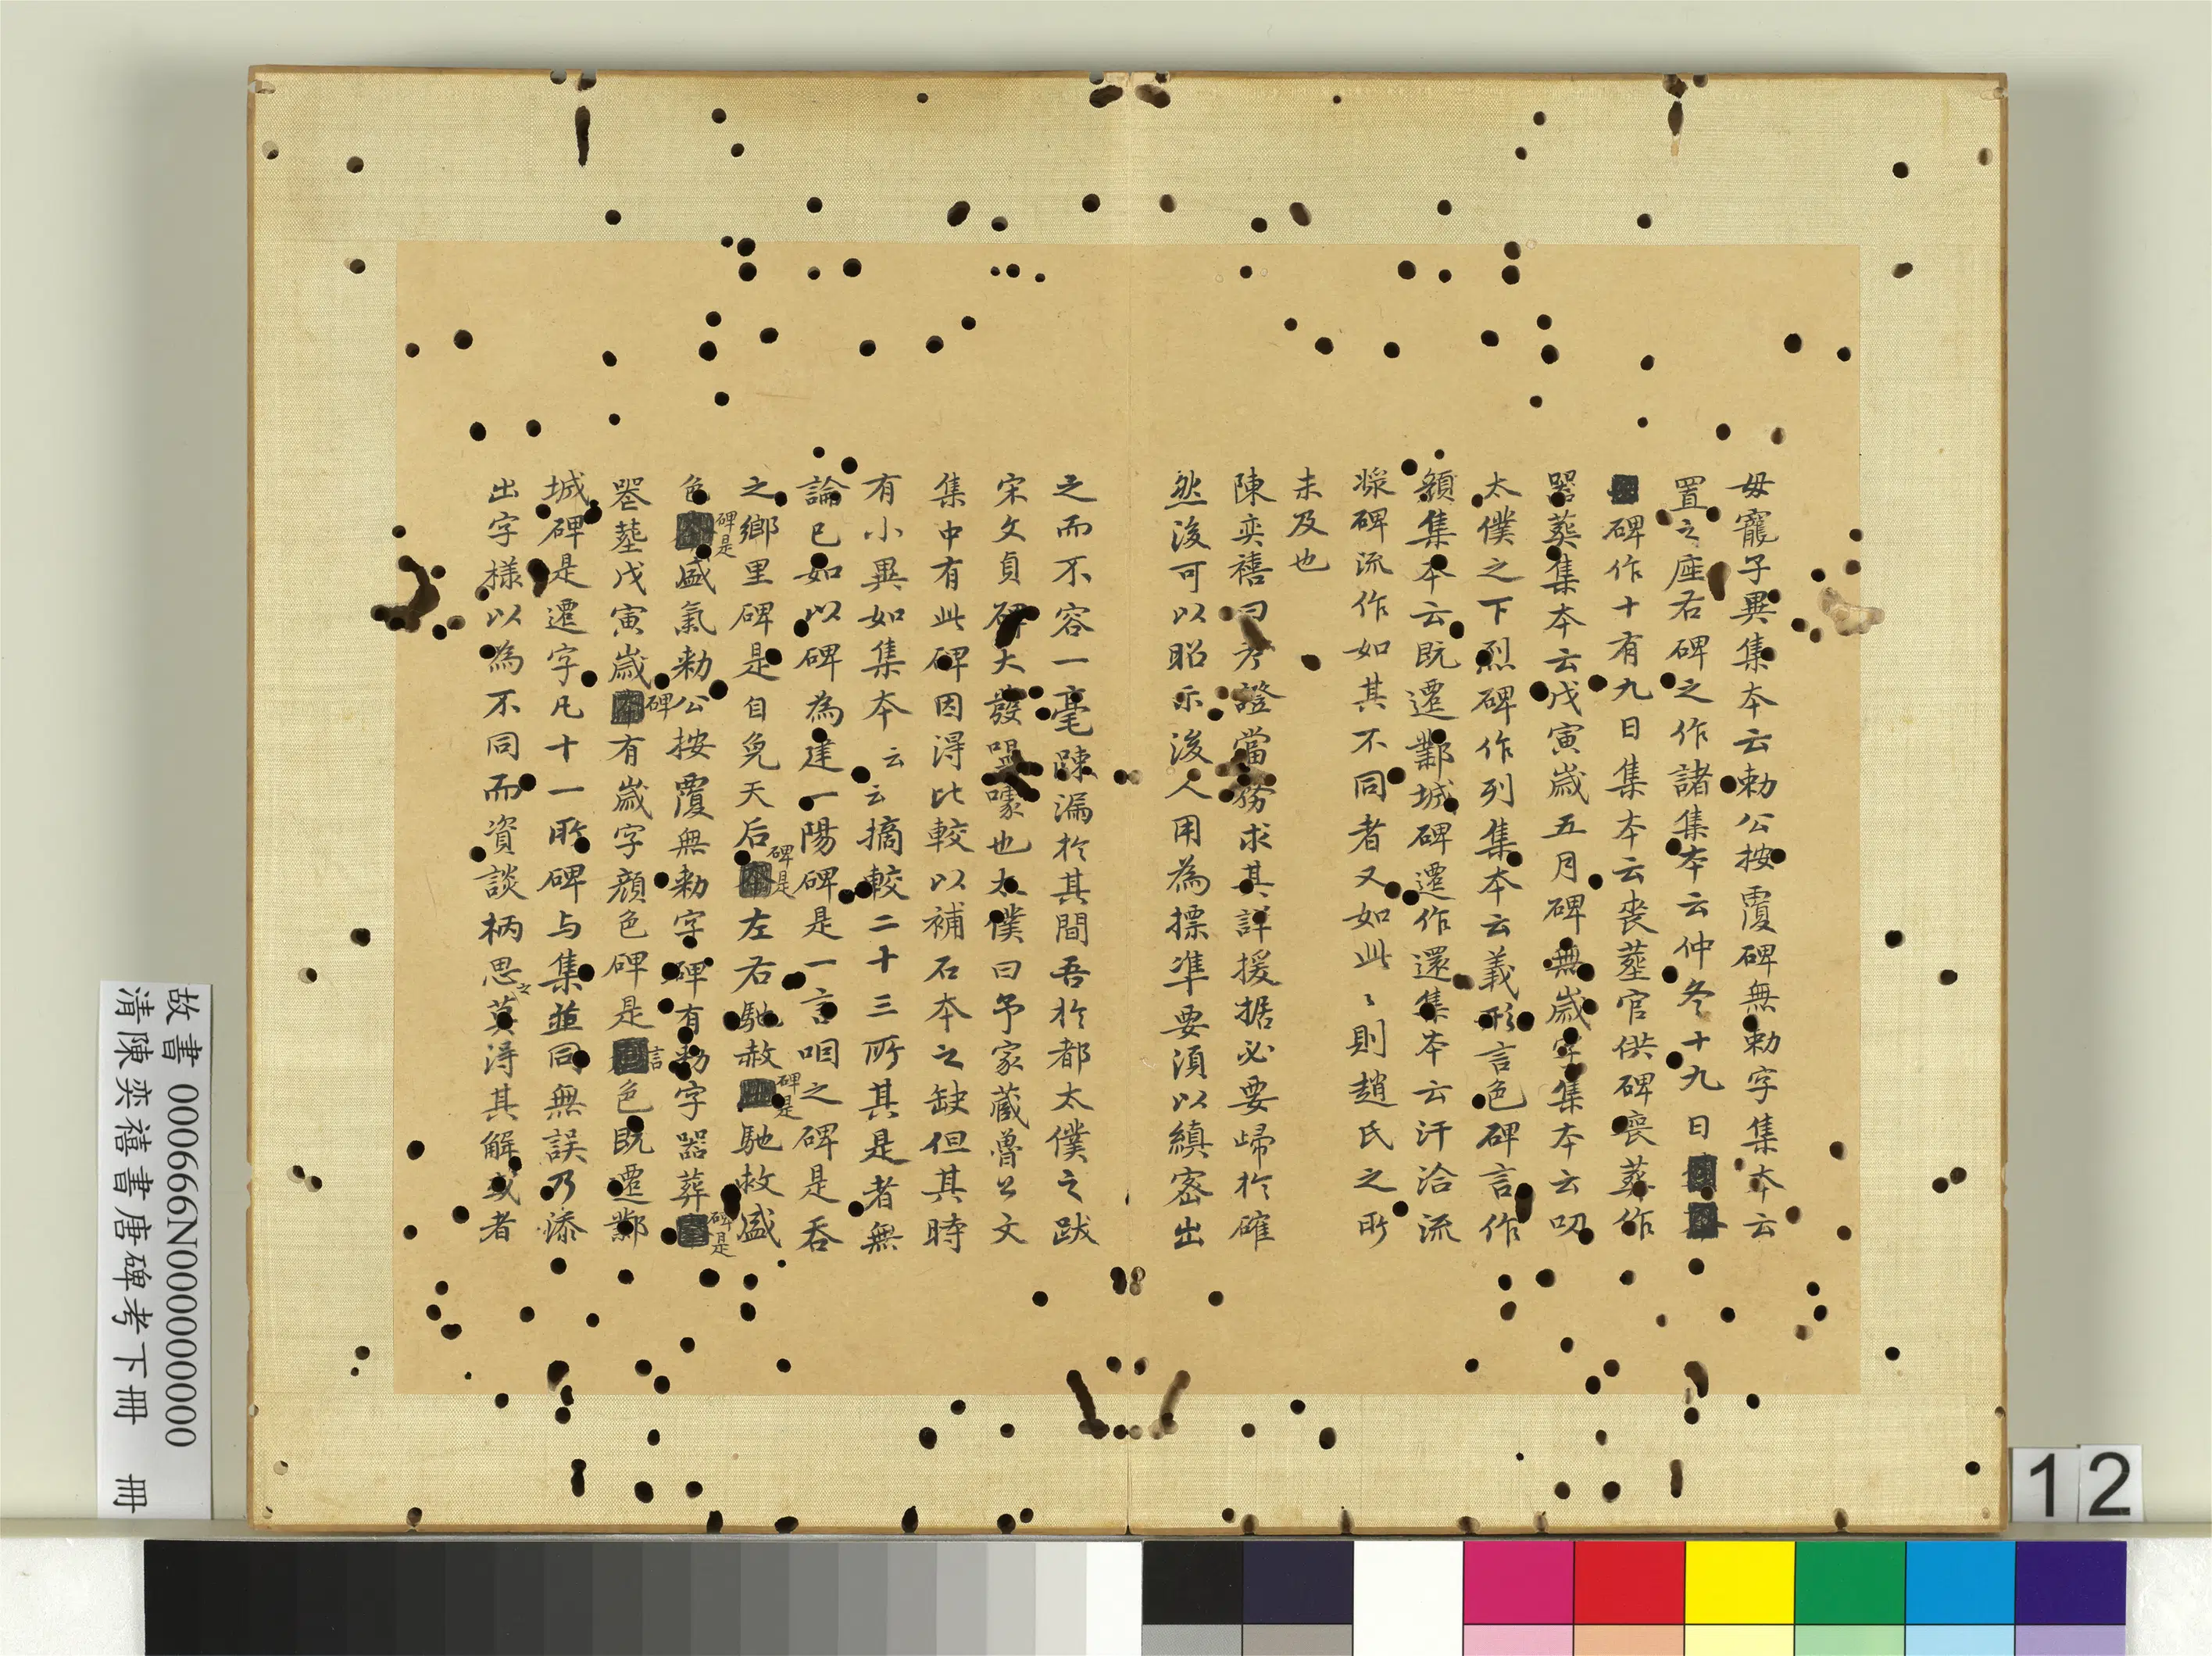 毋寵子異集本云勅公按覆碑無勅字集本云
置之座右碑之作諸集本云仲冬十九日
碑作十有九日集本云喪塟官供碑喪葬作
器葬集本云戊寅歳五月碑無歳字集本云叨
太僕之下烈碑作列集本云義形言色碑言作
顏集本云既遷鄴城碑遷作還集本云汗洽流
漿碑流作如其不同者又如此〻則趙氏之所
未及也
陳奕禧曰考證當務求其詳援据必要歸於確
然後可以昭示後人用為摽準要須以縝密出
之而不容一毫踈漏於其間吾於都太僕之跋
宋文貞碑大發噱也太僕曰予家蔵魯公文
集中有此碑因淂比較以補石本之缺但其時
有小異如集本云云摘較二十三所其是者無
論已如以碑為建一陽碑是一言咽之碑是吞
之鄉里碑是自免天后碑是左右馳赦碑是馳赦盛
色碑是盛氣勅公按覆無勅字碑有勅字器葬碑是
器塟戊寅歳碑有歳字顏色碑是言色既遷鄴
城碑是還字凡十一所碑与集並同無誤乃添
出字様以為不同而資談柄思之莫淂其解或者
故書 000666N000000000
清陳奕禧書唐碑考下冊 冊
12